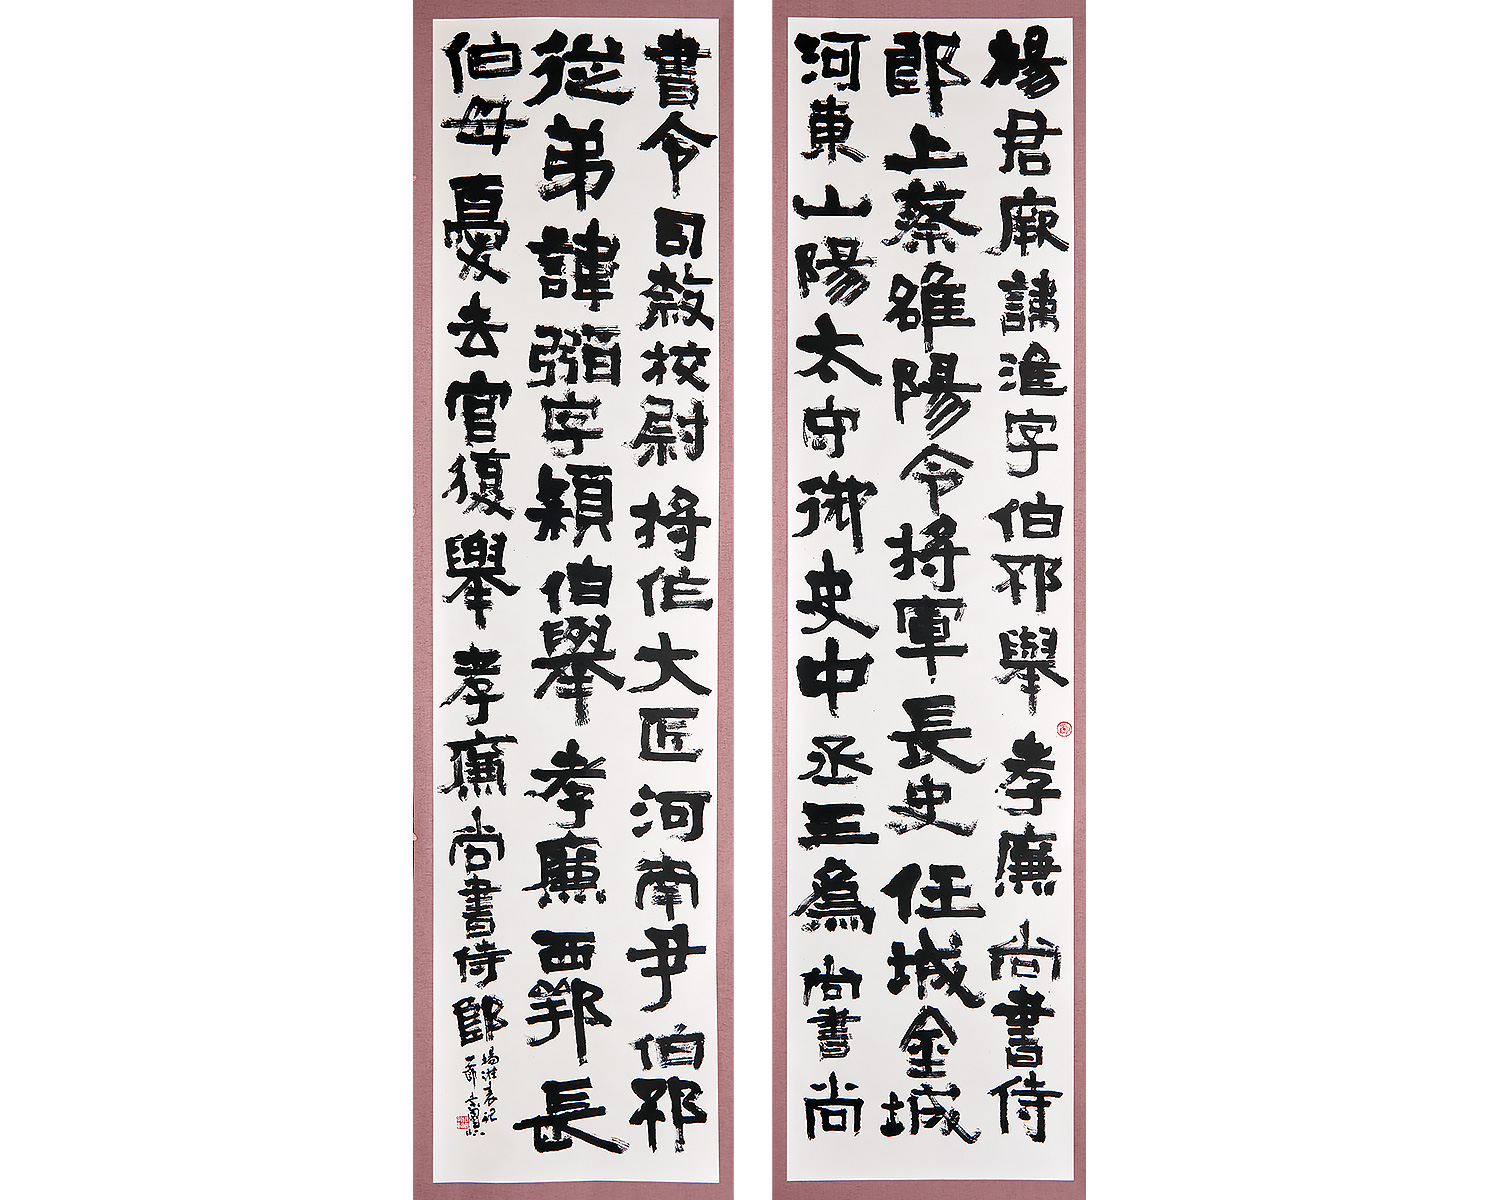 楊君厥諱淮字伯邳舉孝廉尚書侍
郎上蔡雒陽令將軍長史任城金城
河東山陽太守御史中丞三為尚書尚
書令司隸校尉將作大匠河南尹伯邳
從弟諱弼字穎伯舉孝廉西鄂長
伯母憂去官復舉孝廉尚書侍郎
楊淮表記
一節